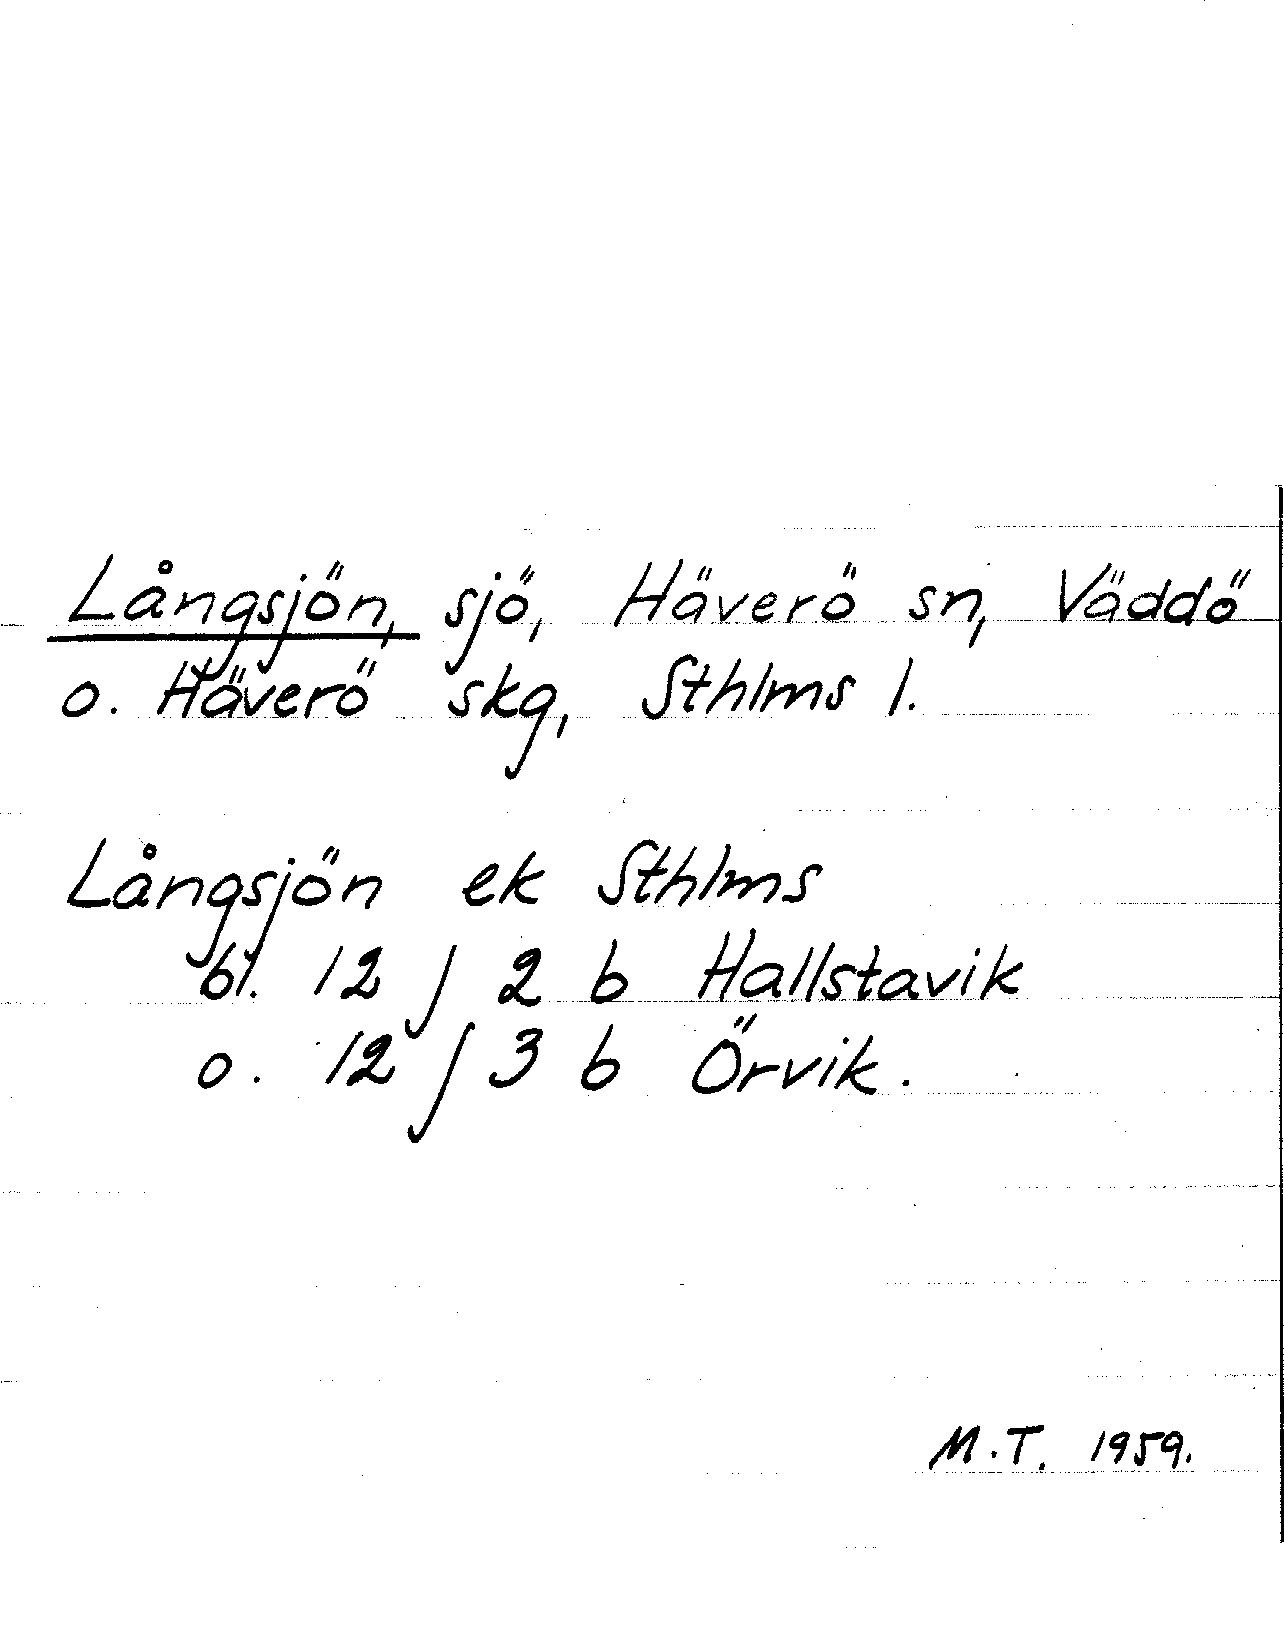 Långsjön, sjö, Häverö sn, Väddö
o. Häverö skg, Sthlms l.
Långsjön ek Sthlms
bl. 12 j 2 b Hallstavik
o. 12 j 3 b Örvik.
M.T. 1959.